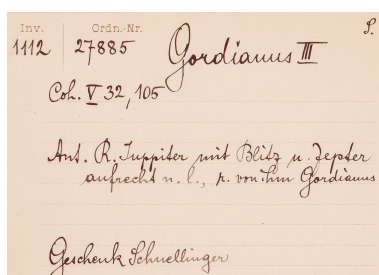 Inv. Ordn.-Nr. S.
1112 27885 Gordianus III
Coh. V 32, 105
Ant. R. Juppiter mit Blitz u. Zepter
aufrecht n. l., r. von ihm Gordianus
Geschenk Schnellinger